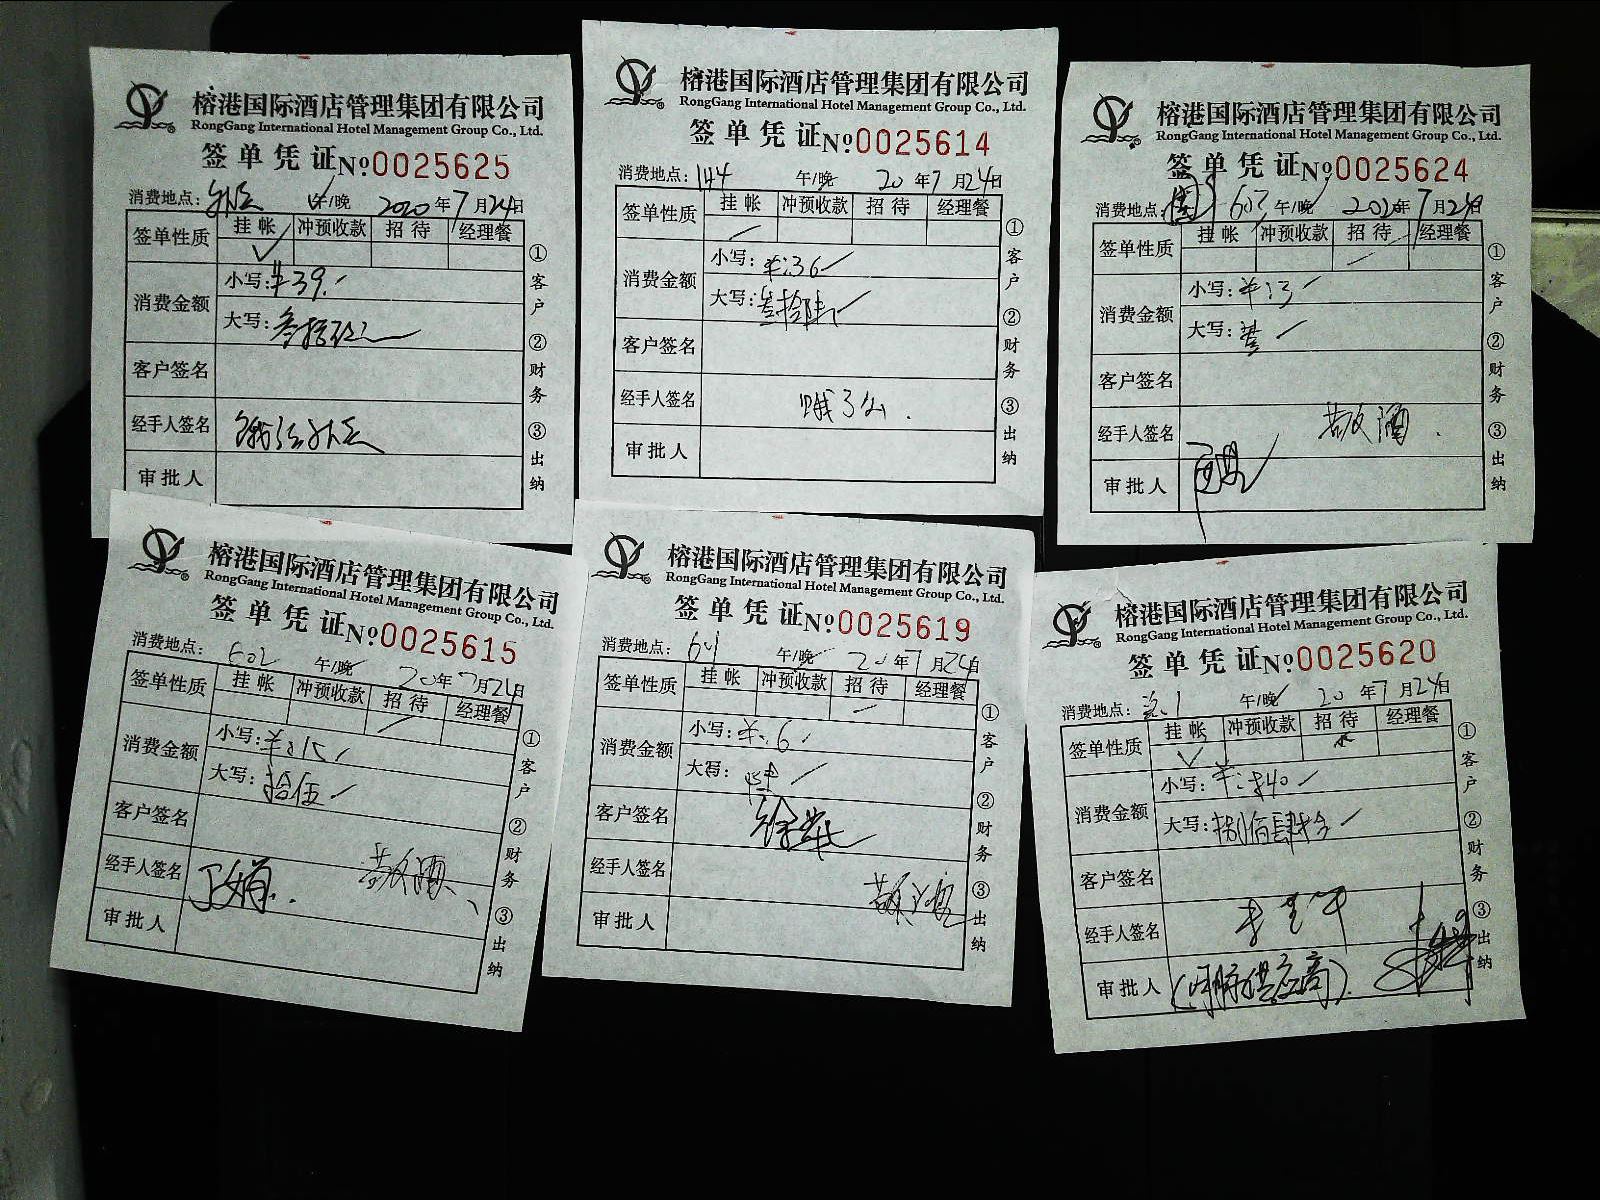 榕港国际酒店管理集团有限公司
RongGang International Hotel Management Group Co., Ltd.
签单凭证 No 0025625
消费地点: 外卖 午/晚 2020年7月24日
签单性质 挂帐 冲预收款 招待 经理餐
消费金额 小写: ¥39.
大写: 叁拾玖元
客户签名
经手人签名 饿了么外卖
审批人
①客户 ②财务 ③出纳
榕港国际酒店管理集团有限公司
RongGang International Hotel Management Group Co., Ltd.
签单凭证 No 0025614
消费地点: 144 午/晚 20年7月24日
签单性质 挂帐 冲预收款 招待 经理餐
消费金额 小写: ¥:36
大写: 叁拾陆
客户签名
经手人签名 饿了么.
审批人
①客户 ②财务 ③出纳
榕港国际酒店管理集团有限公司
RongGang International Hotel Management Group Co., Ltd.
签单凭证 No 0025624
消费地点: 607 午/晚 2020年7月24日
签单性质 挂帐 冲预收款 招待 经理餐
消费金额 小写: ¥:3
大写: 叁
客户签名
经手人签名 敬酒.
审批人
①客户 ②财务 ③出纳
榕港国际酒店管理集团有限公司
RongGang International Hotel Management Group Co., Ltd.
签单凭证 No 0025615
消费地点: 602 午/晚 20年7月24日
签单性质 挂帐 冲预收款 招待 经理餐
消费金额 小写: ¥:15
大写: 拾伍
客户签名
经手人签名 丁文娟. 敬酒
审批人
①客户 ②财务 ③出纳
榕港国际酒店管理集团有限公司
RongGang International Hotel Management Group Co., Ltd.
签单凭证 No 0025619
消费地点: 601 午/晚 20年7月24日
签单性质 挂帐 冲预收款 招待 经理餐
消费金额 小写: ¥:6
大写: 陆
客户签名
经手人签名 敬酒
审批人
①客户 ②财务 ③出纳
榕港国际酒店管理集团有限公司
RongGang International Hotel Management Group Co., Ltd.
签单凭证 No 0025620
消费地点: 午/晚 20年7月24日
签单性质 挂帐 冲预收款 招待 经理餐
消费金额 小写: ¥:840
大写: 捌佰肆拾
客户签名
经手人签名
审批人 供应商)
①客户 ②财务 ③出纳